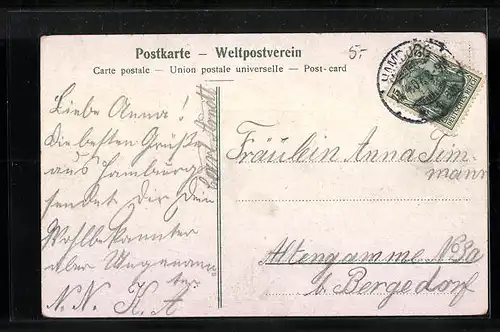 Postkarte – Weltpostverein
Carte postale – Union postale universelle – Post-card
5.-
HAMBURG
DEUTSCHES REICH
Liebe Anna!
Die besten Grüße
aus Hamburg
sendet Dir Dein
Wohlbekannter
aber Ungenann
ter
N. N. K. A
Georg Arndt
Fräulein Anna Tim
mann
Altengamme No 8a
b. Bergedorf